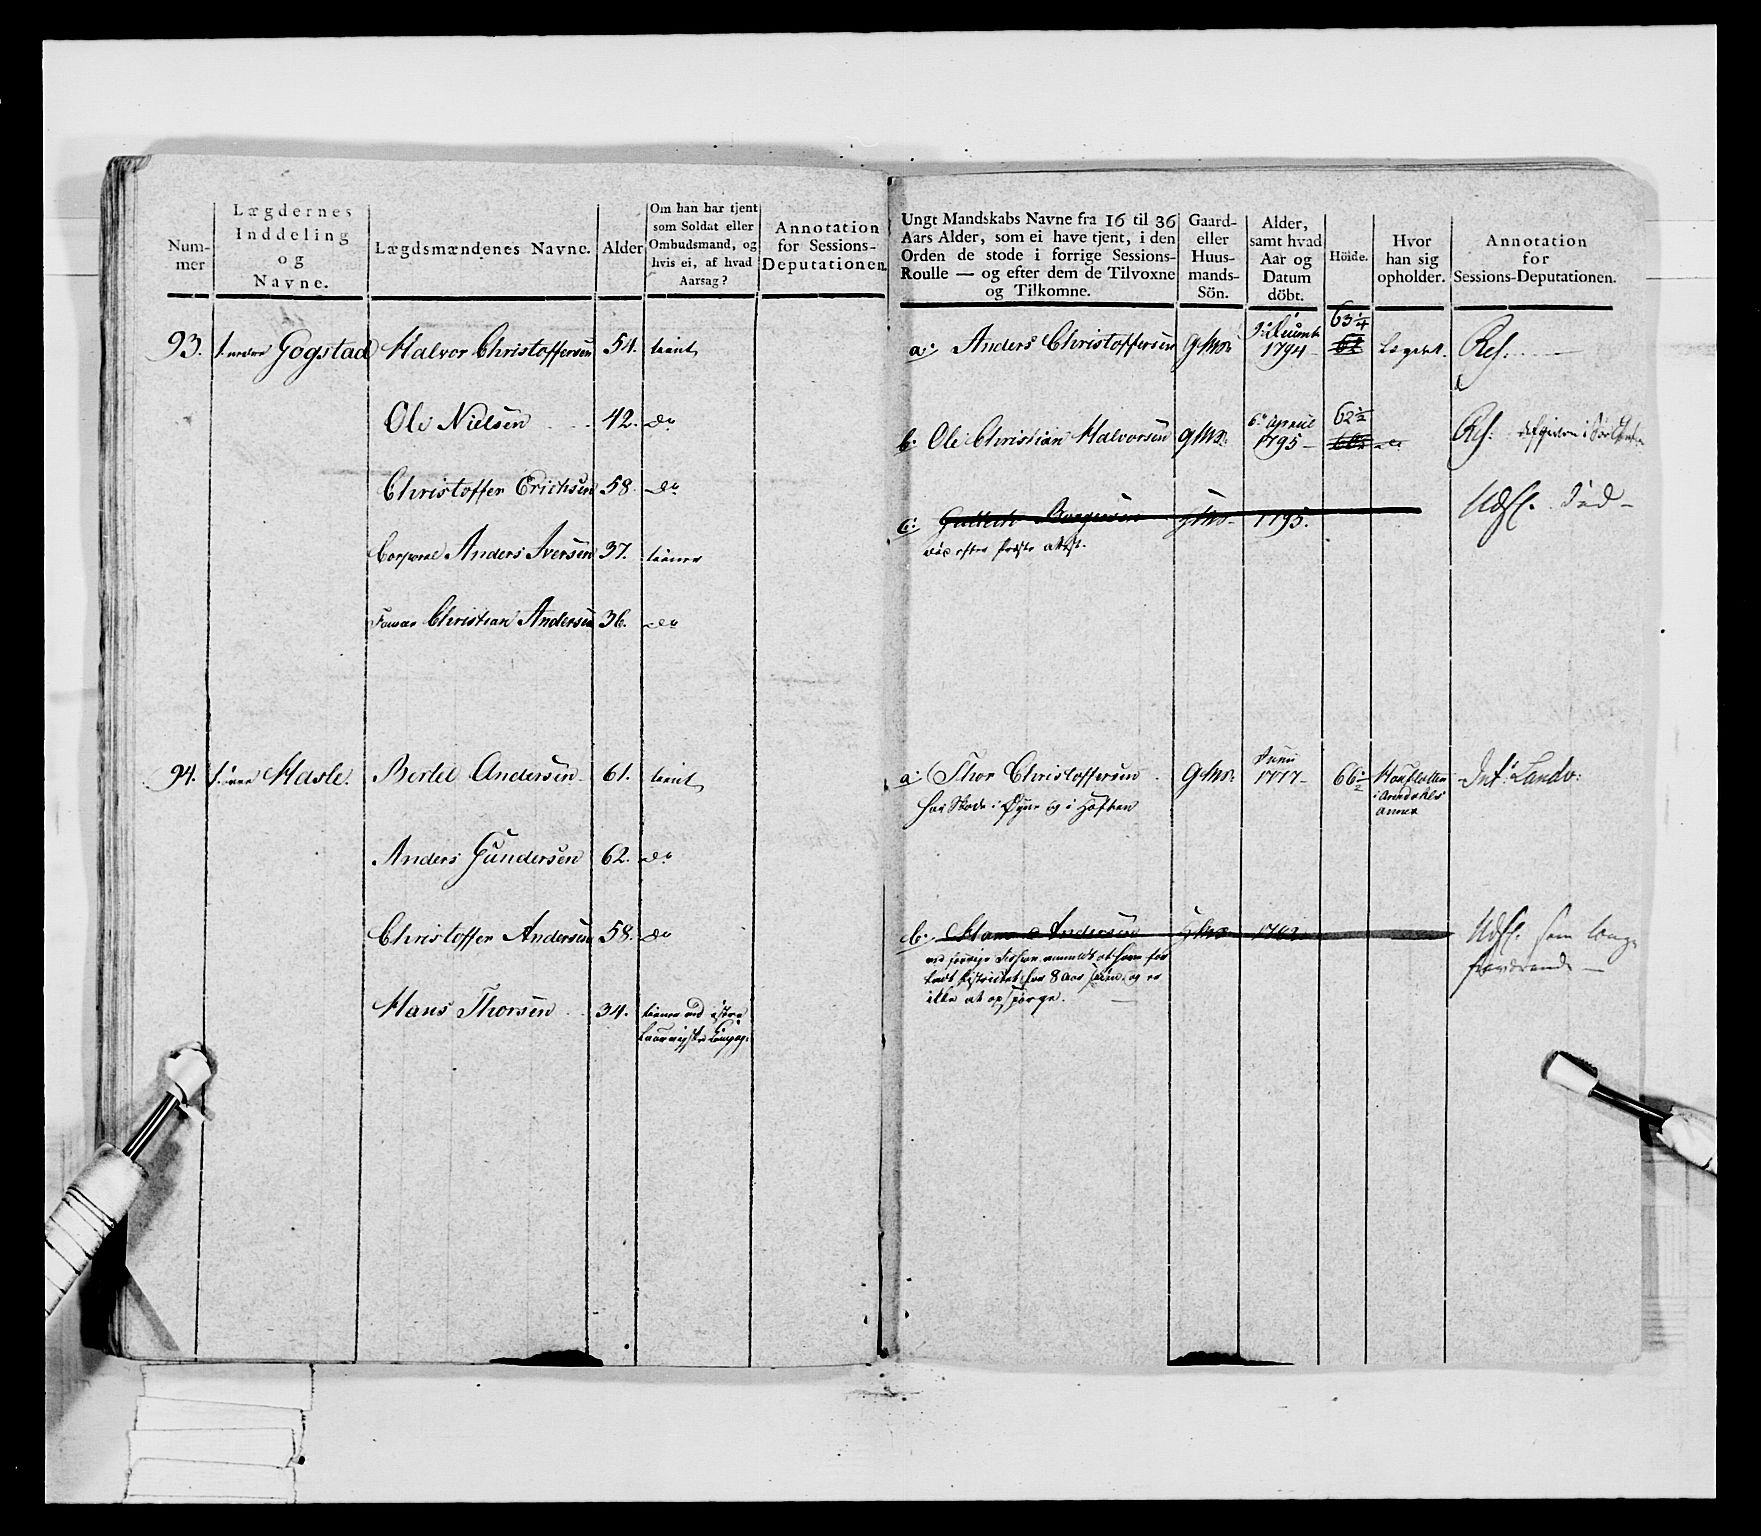 Num-
mer
Lægdernes
Inddeling
og
Navne.
Lægdsmændenes Navne.
Alder
Om han har tjent
som Soldat eller
Ombudsmand, og
hvis ei, af hvad
Aarsag?
Annotation
for Sessions-
Deputationen
93. Gogstad Halvor Christoffersen 54. tient
Ole Nielsen 42. do
Christoffer Erichsen 58. do
Corporal Anders Iversen 37. tiener
Christian Andersen 36. do
94. Hasle. Bertel Andersen 61. tient
Anders Gundersen 62. do
Christoffer Andersen 58. do
Hans Thorsen 34. tiener ved
Ungt Mandskabs Navne fra 16 til 36
Aars Alder, som ei have tjent, i den
Orden de stode i forrige Sessions-
Roulle — og efter dem de Tilvoxne
og Tilkomne.
Gaard-
eller
Huus-
mands-
Sön.
Alder,
samt hvad
Aar og
Datum
döbt.
Höide.
Hvor
han sig
opholder.
Annotation
for
Sessions-Deputationen.
63 1/4
a: Anders Christoffersen 1794 Lægdet. Ref.
6 April 62 1/2
b: Ole Christian Halvorsen 1795 Ref:
c: 1795. Udsl. Död
död efter Præste attest.
Juni
a: Thor Christoffersen 1777 66 1/2 Int: Landv:
har Skade i Øjne og i Hoften
b: Hans Andersen Udsl. som længe
fraværende
8 Aar siden, og er
ikke at opspörge.